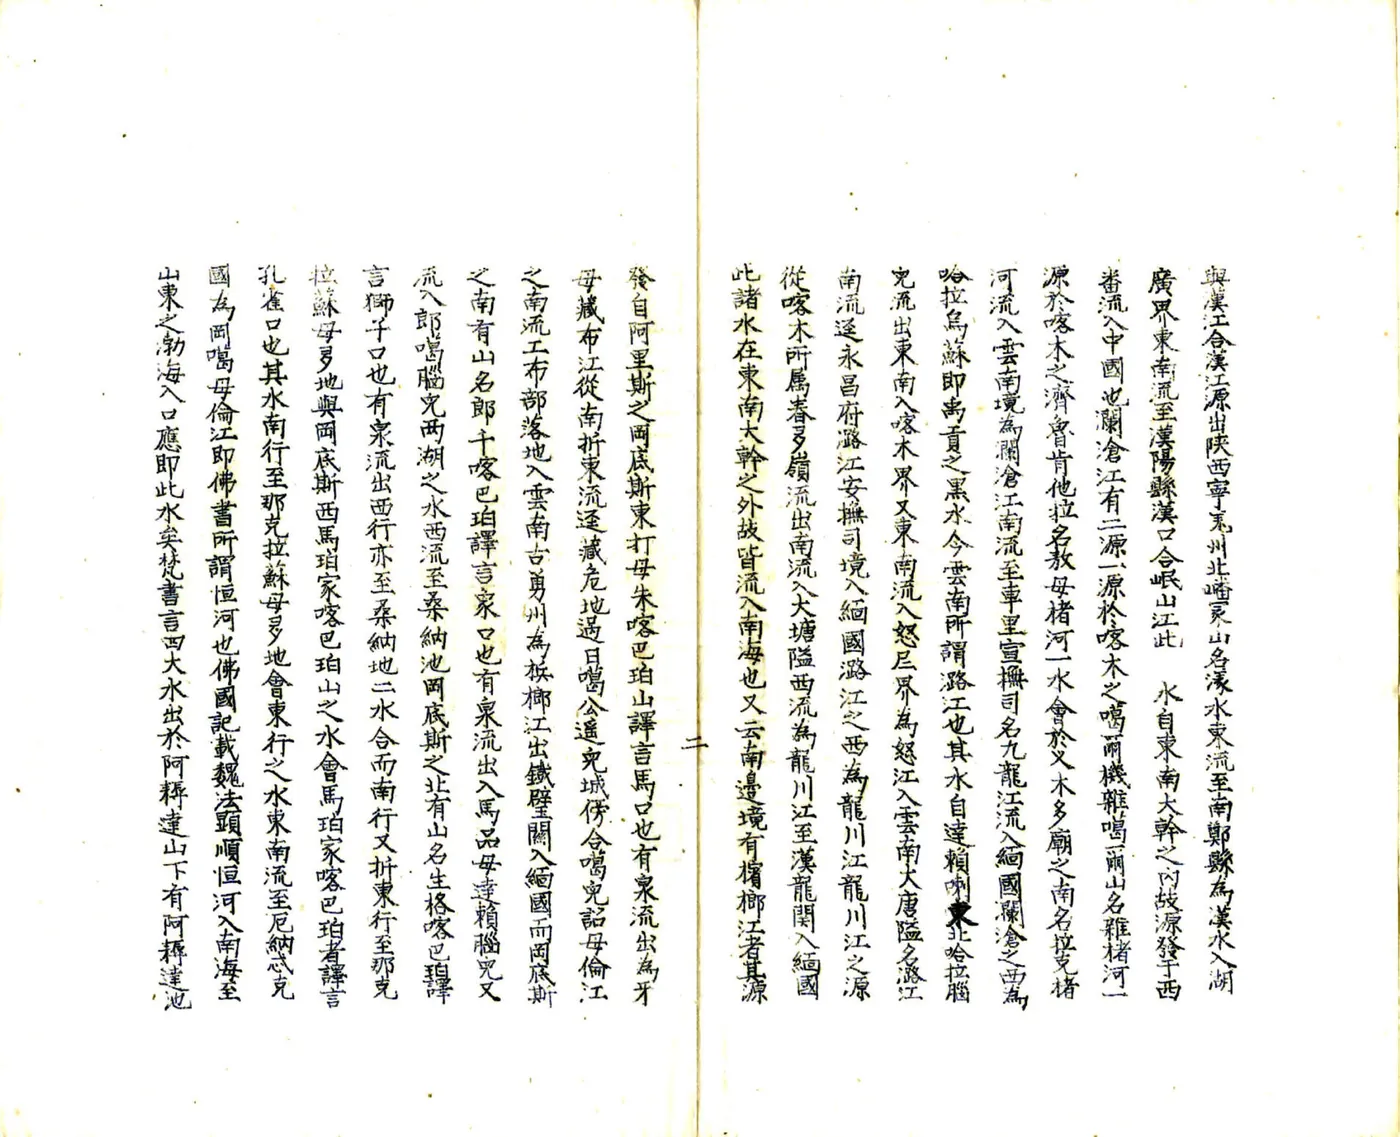 與漢江合漢江源出陝西寧羌州北嶓冢山名漾水東流至南鄭縣為漢水入湖
廣界東南流至漢陽縣漢口合岷山江此 水自東南大幹之內故源發于西
番流入中國也瀾滄江有二源一源於喀木之噶爾機雜噶爾山名雜楮河一
源於喀木之濟魯肯他拉名敖母楮河一水會於义木多廟之南名拉克楮
河流入雲南境為瀾滄江南流至車里宣撫司名九龍江流入緬國瀾滄之西為
哈拉烏蘇即禹貢之黑水今雲南所謂潞江也其水自達賴喇東北哈拉腦
兒流出東南入喀木界又東南流入怒尼界為怒江入雲南大唐隘名潞江
南流逕永昌府潞江安撫司境入緬國潞江之西為龍川江龍川江之源
從喀木所属春多嶺流出南流入大塘隘西流為龍川江至漢龍関入緬國
此諸水在東南大幹之外故皆流入南海也又云南邊境有檳榔江者其源
發自阿里斯之岡底斯東打母朱喀巴珀山譯言馬口也有泉流出為牙
母藏布江從南折東流逕藏危地過日噶公遥兒城傍合噶兒詔母倫江
之南流工布部落地入雲南古勇州為梹榔江出鐵壁關入緬國而岡底斯
之南有山名郎千喀巴珀譯言象口也有泉流出入馬品母達賴腦兒又
流入郎噶腦兒两湖之水西流至桑納池岡底斯之北有山名生格喀巴珀譯
言獅子口也有泉流出西行亦至桑納地二水合而南行又折東行至那克
拉蘇母多地與岡底斯西馬珀家喀巴珀山之水會馬珀家喀巴珀者譯言
孔雀口也其水南行至那克拉蘇母多地會東行之水東南流至厄納忒克
國為岡噶母倫江即佛書所謂恒河也佛國記載魏法顕順恒河入南海至
山東之渤海入口應即此水矣梵書言四大水出於阿耨達山下有阿耨達池
二